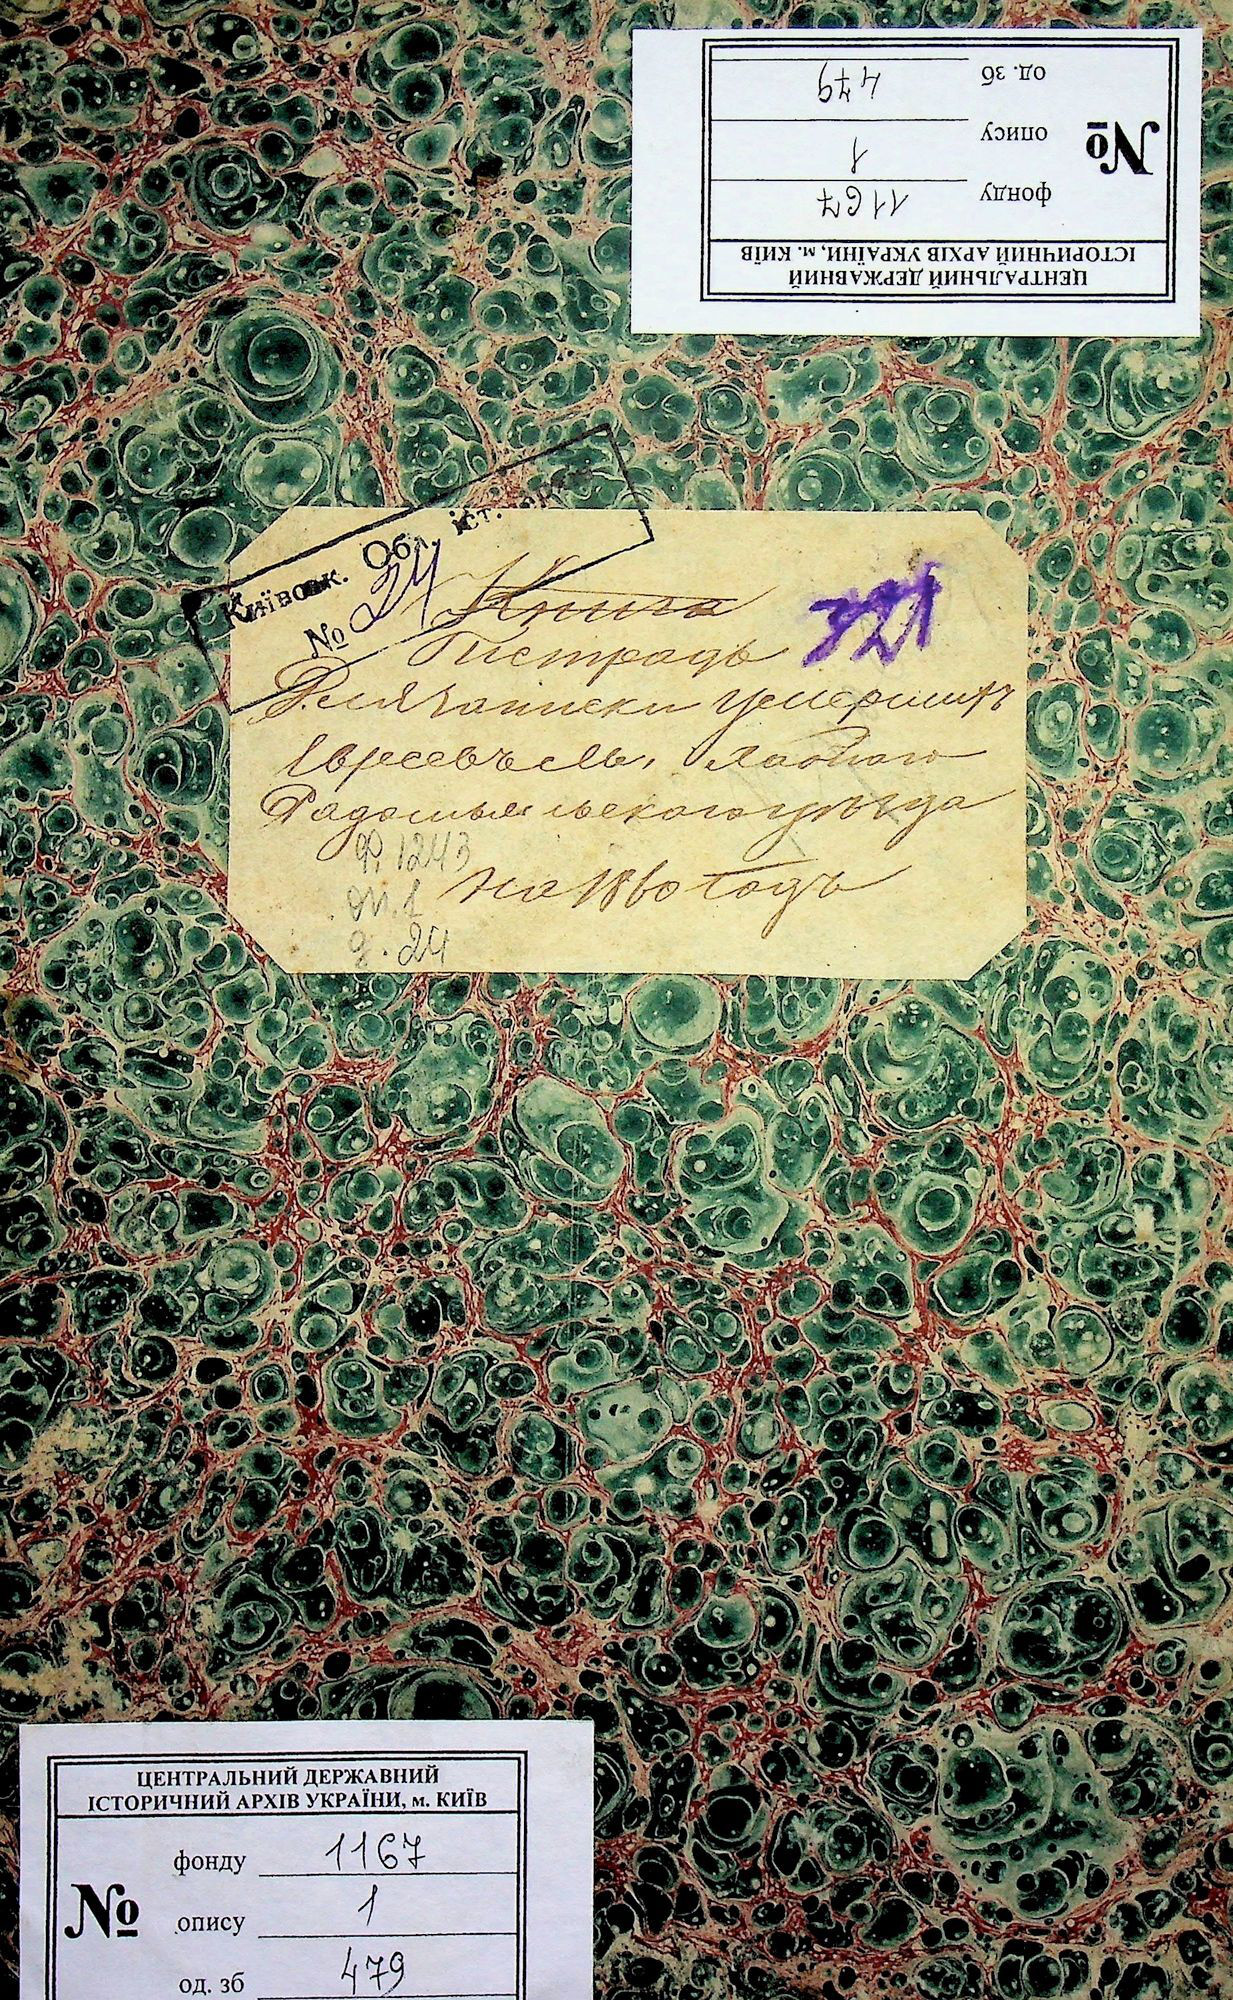 ЦЕНТРАЛЬНИЙ ДЕРЖАВНИЙ
ІСТОРИЧНИЙ АРХІВ УКРАЇНИ, м. КИЇВ
фонду 1167
№ опису 1
од. зб 479
Київськ. Обл. Іст.
№ 24
Книга
321
Для записки умерших
Евреевъ м.
Радомысльского уезда
на 1860 годъ
Ф. 1243
оп. 1
д. 24
ЦЕНТРАЛЬНИЙ ДЕРЖАВНИЙ
ІСТОРИЧНИЙ АРХІВ УКРАЇНИ, м. КИЇВ
фонду 1167
№ опису 1
од. зб 479